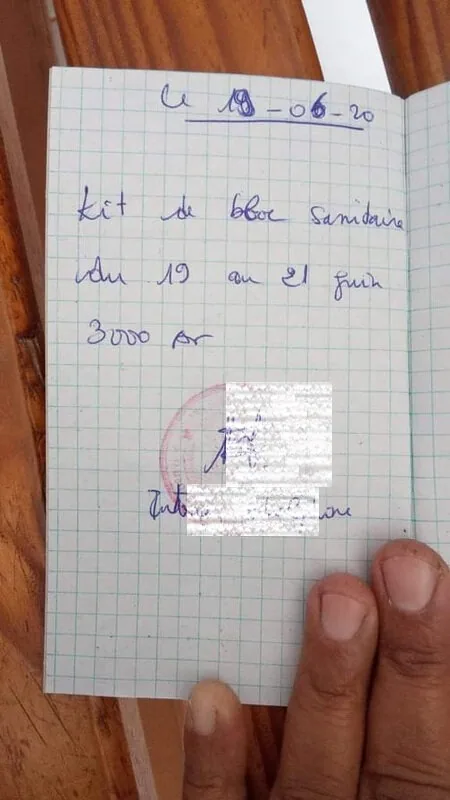 Le 19-06-20
Kit de bloc sanitaire
du 19 au 21 juin
3000 Ar